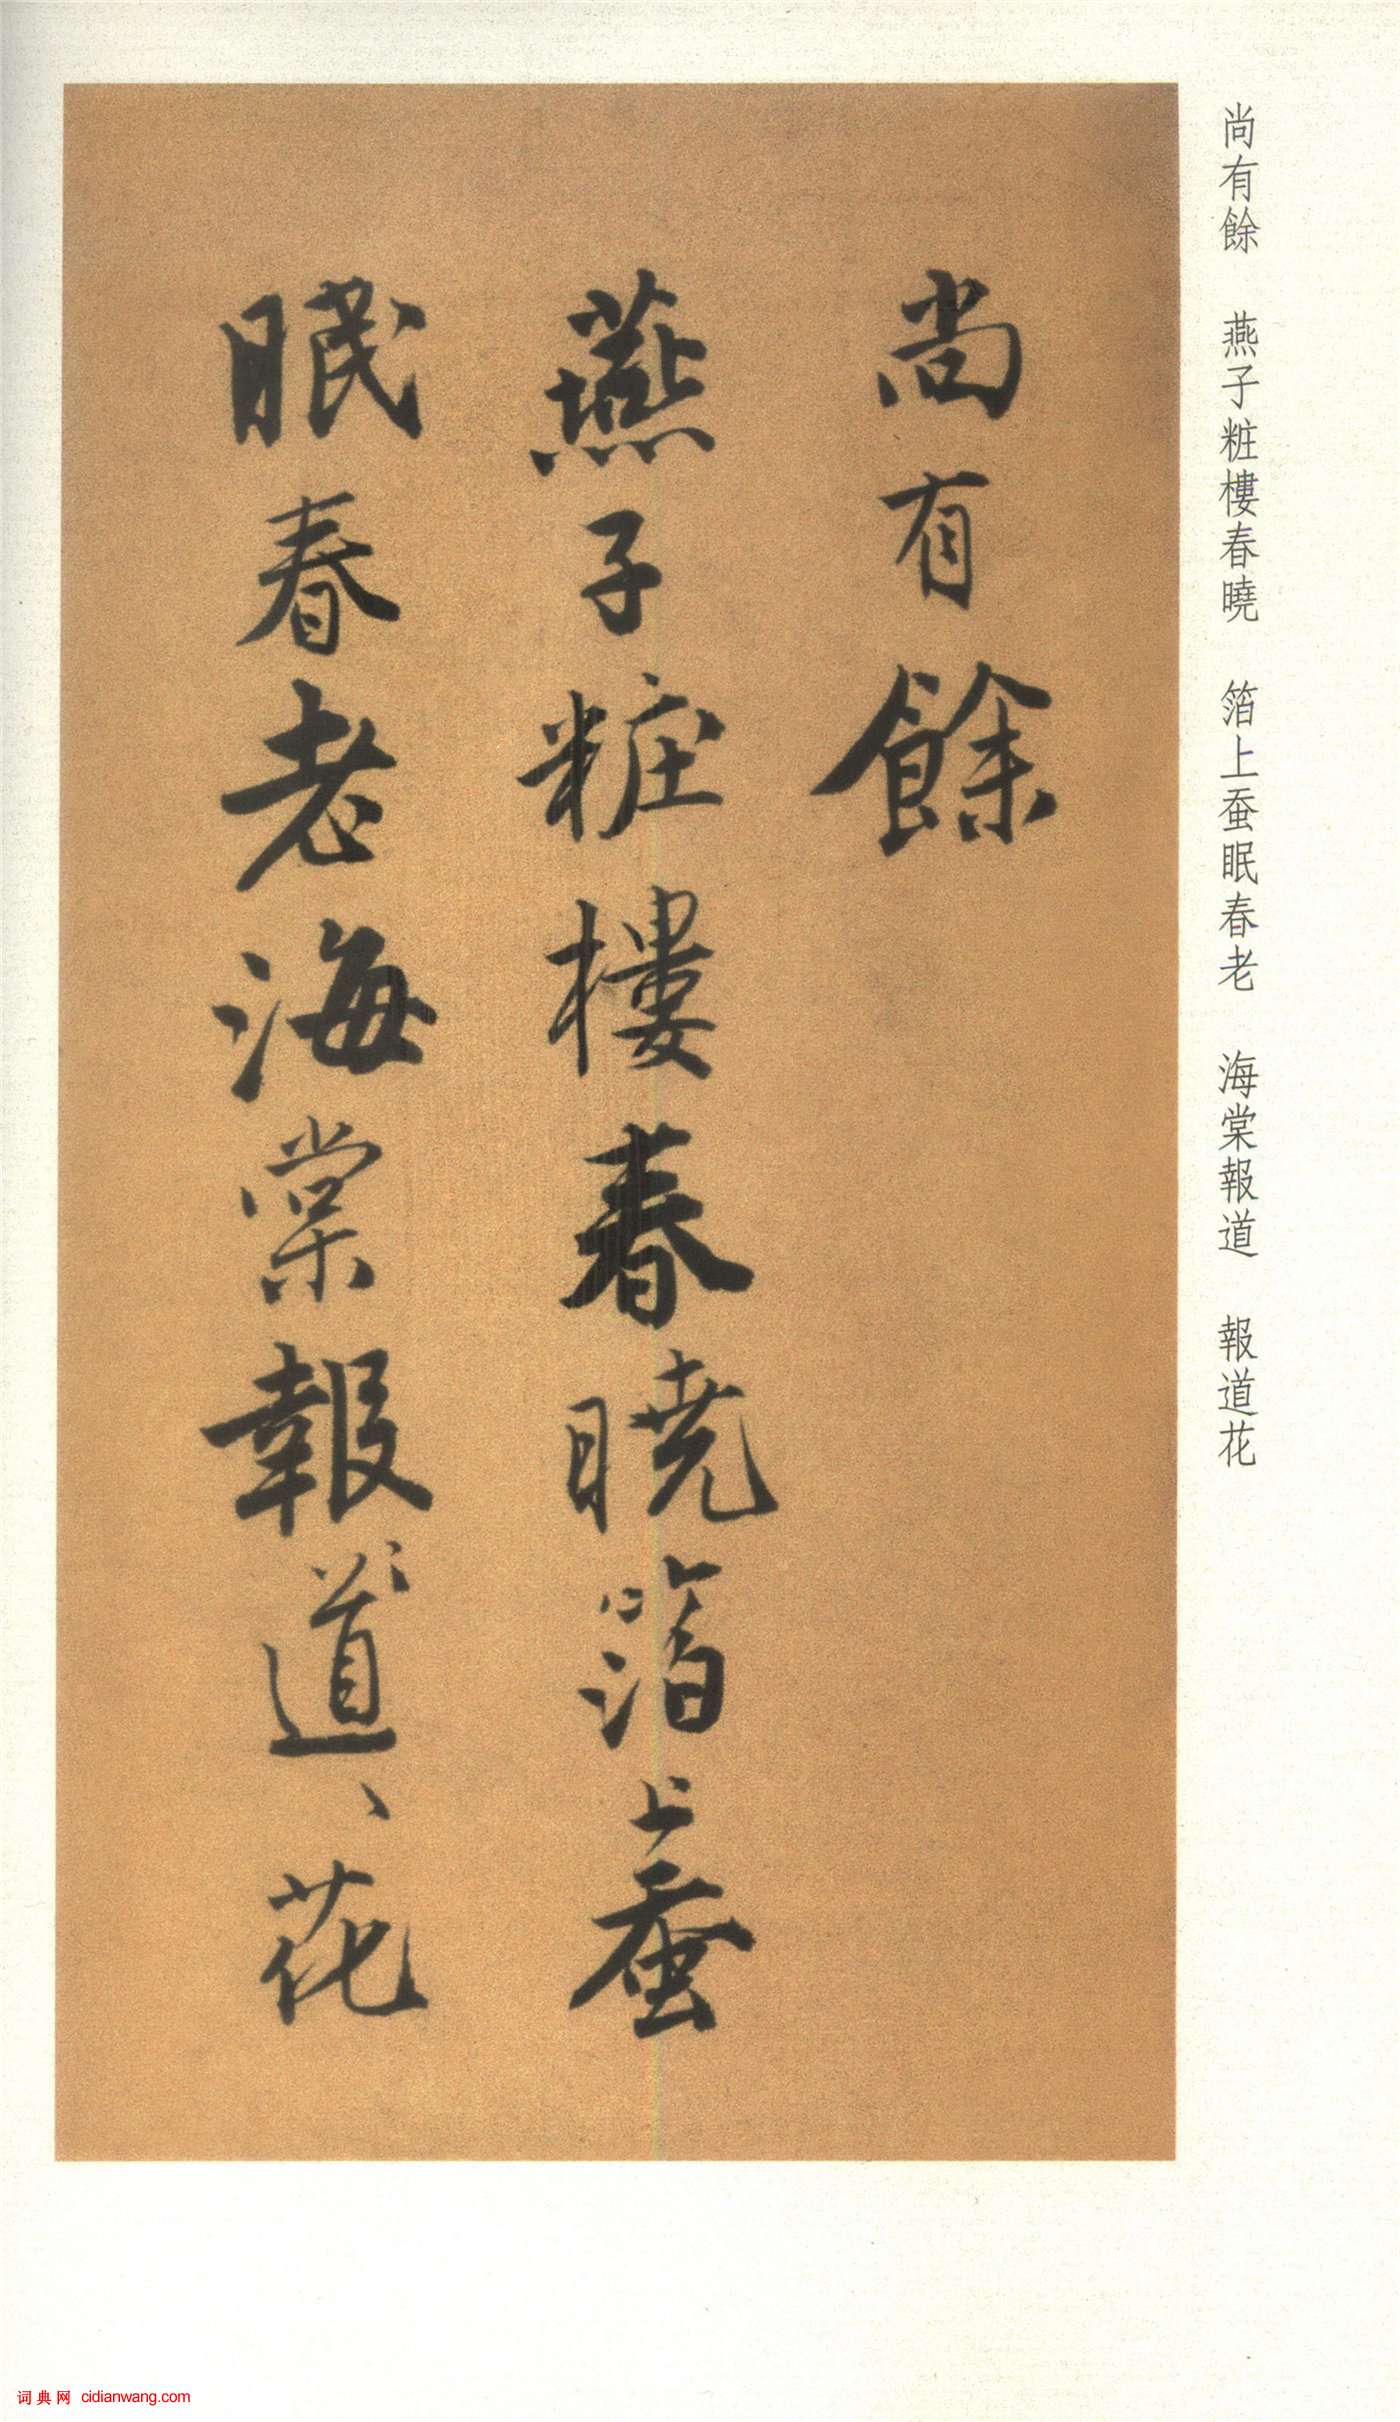 尚有餘　燕子粧樓春曉　箔上蚕眠春老　海棠報道　報道花
尚有餘
燕子粧樓春曉箔上蚕
眠春老海棠報道、、花
词典网 cidianwang.com